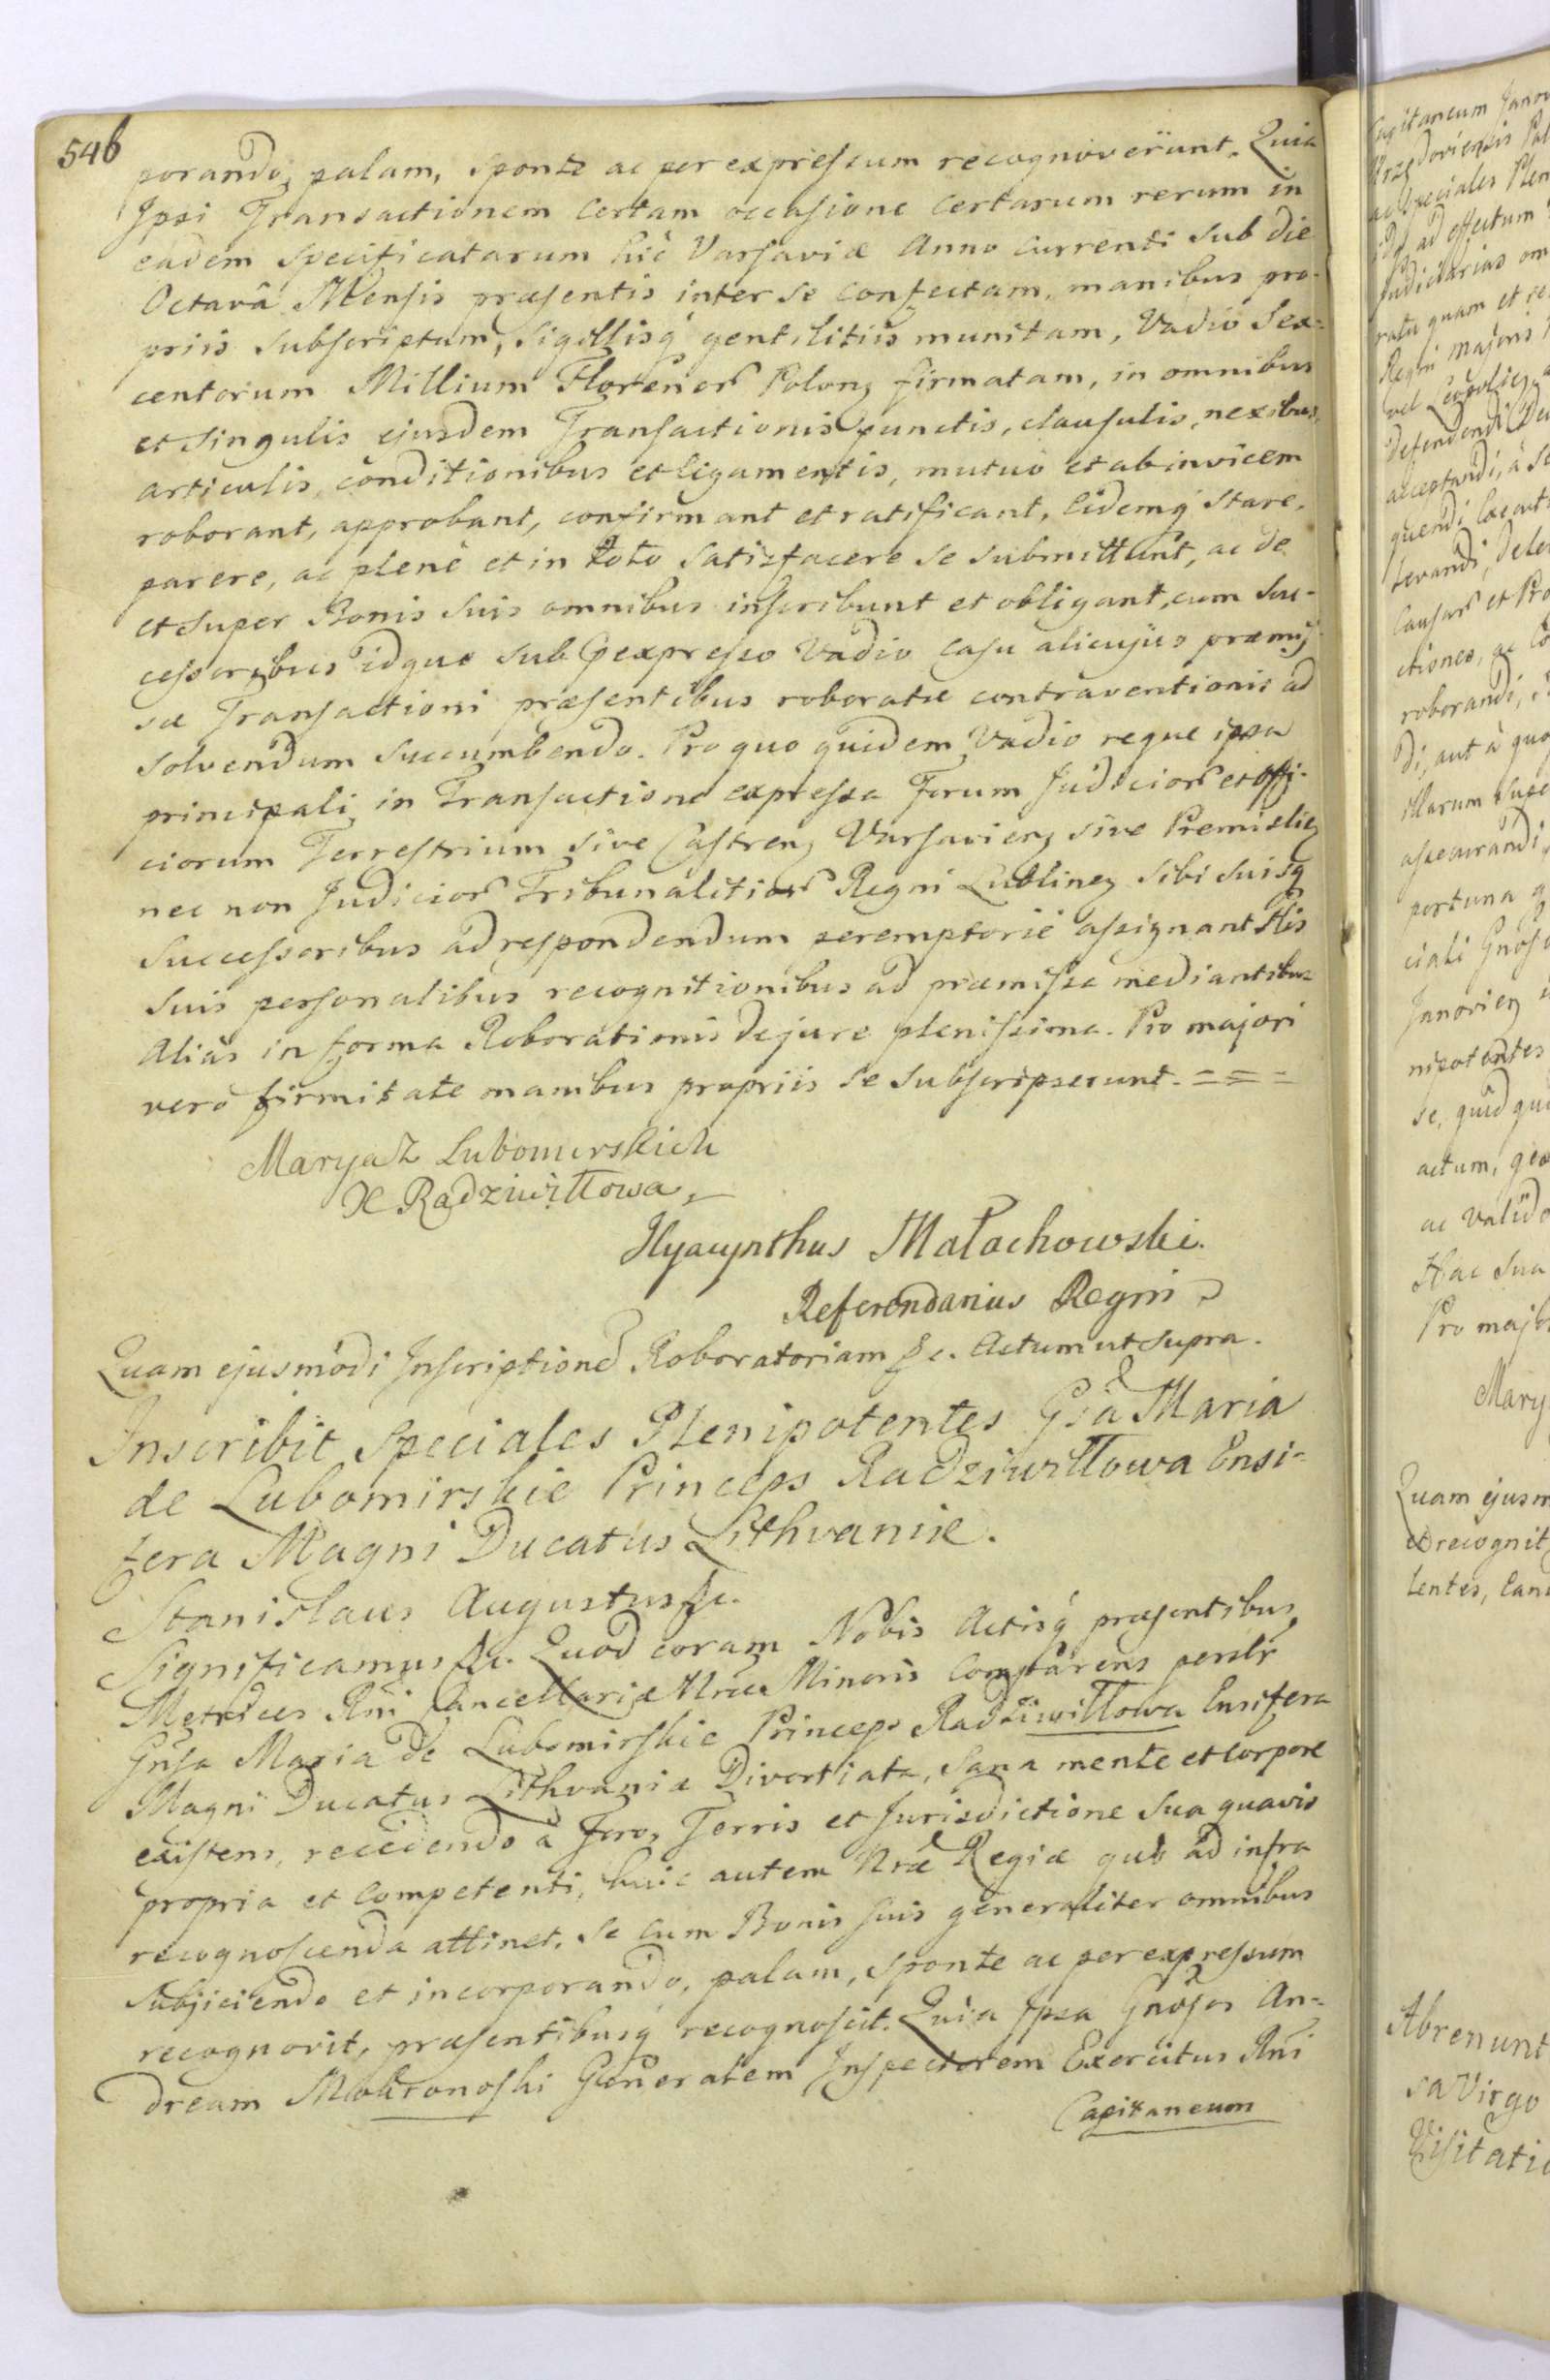 546
porando, palam, sponte ac per expressum recognoverunt. Quia
Ipsi Transactionem certam occasione certarum rerum in
eadem specificatarum hic Varsaviæ Anno currenti sub die
Octavâ Mensis præsentis inter se confectam, manibus pro-
priis subscriptam, Sigillisq gentilitiis munitam, Vadio Sex-
centorum Millium Florenor Polon firmatam, in omnibus
et singulis ejusdem Transactionis punctis, clausulis, nexibus,
articulis, conditionibus et ligamentis, mutuo et ab invicem
roborant, approbant, confirmant et ratificant, Eidemq stare,
parere, ac plenè et in toto satisfacere se submittunt, ac de
et super Bonis suis omnibus inscribunt et obligant, cum Suc-
cessoribus idque sub expresso Vadio casu alicujus præmis-
sæ Transactioni præsentibus roboratæ contraventionis ad
solvendum succumbendo. Pro quo quidem Vadio reque ipsa
principali in Transactione expressa Forum Judicior et Offi-
ciorum Terrestrium sive Castren Varsavien sive Premislien
nec non Judicior Tribunalitior Regni Lublinen sibi suisq
Successoribus ad respondendum peremptoriè assignant His
suis personalibus recognitionibus ad præmissa mediantibus
Aliàs in forma Roborationis de jure plenissima. Pro majori
verò firmitate manibus propriis se subscripserunt. = = =
Marya z Lubomirskich
X Radziwiłłowa
Hyacynthus Małachowski.
Referendarius Regni
Quam ejusmodi Inscriptione Roboratoriam &c. Actum ut supra.
Inscribit Speciales Plenipotentes Gsa Maria
de Lubomirskie Princeps Radziwiłłowa Ensi-
fera Magni Ducatus Lithvaniæ.
Stanislaus Augustus &c.
Significamus &c. Quod coram Nobis Actisq præsentibus
Metrices Rni Cancellariæ Nræ Minoris Comparens persltr
Gnsa Maria de Lubomirskie Princeps Radziwiłłowa Ensifera
Magni Ducatus Lithvaniæ Divortiata, sana mente et corpore
existens, recedendo à Foro, Terris et Jurisdictione sua quavis
propria et competenti, huic autem Nræ Regiæ quò ad infra
recognoscenda attinet, se cum Bonis suis generaliter omnibus
subjiciendo et incorporando, palam, sponte ac per expressum
recognovit, præsentibusq recognoscit. Quia Ipsa Gnosos An-
dream Mokronoski Generalem Inspectorem Exercitus Rni
Capitaneum
Capitaneum Janov
ac Speciales Plen
ad effectum
Judiciarias om
ratu quam et re
Regni majoris
vel Leopolien
defendendi
acceptandi, à
quendi
levandi,
Causar et Pro
ctiones, ac Co
roborandi,
di, aut à quo
illarum supe
assecurandi
portuna q
ciali Gnoso
Janovien
nipotentes
se, quid qui
actum,
ac valido
Hac sua
Pro major
Mary
Quam ejusm
et recognit
tentes, Can
Abrenunt
sa Virgo
Visitatio